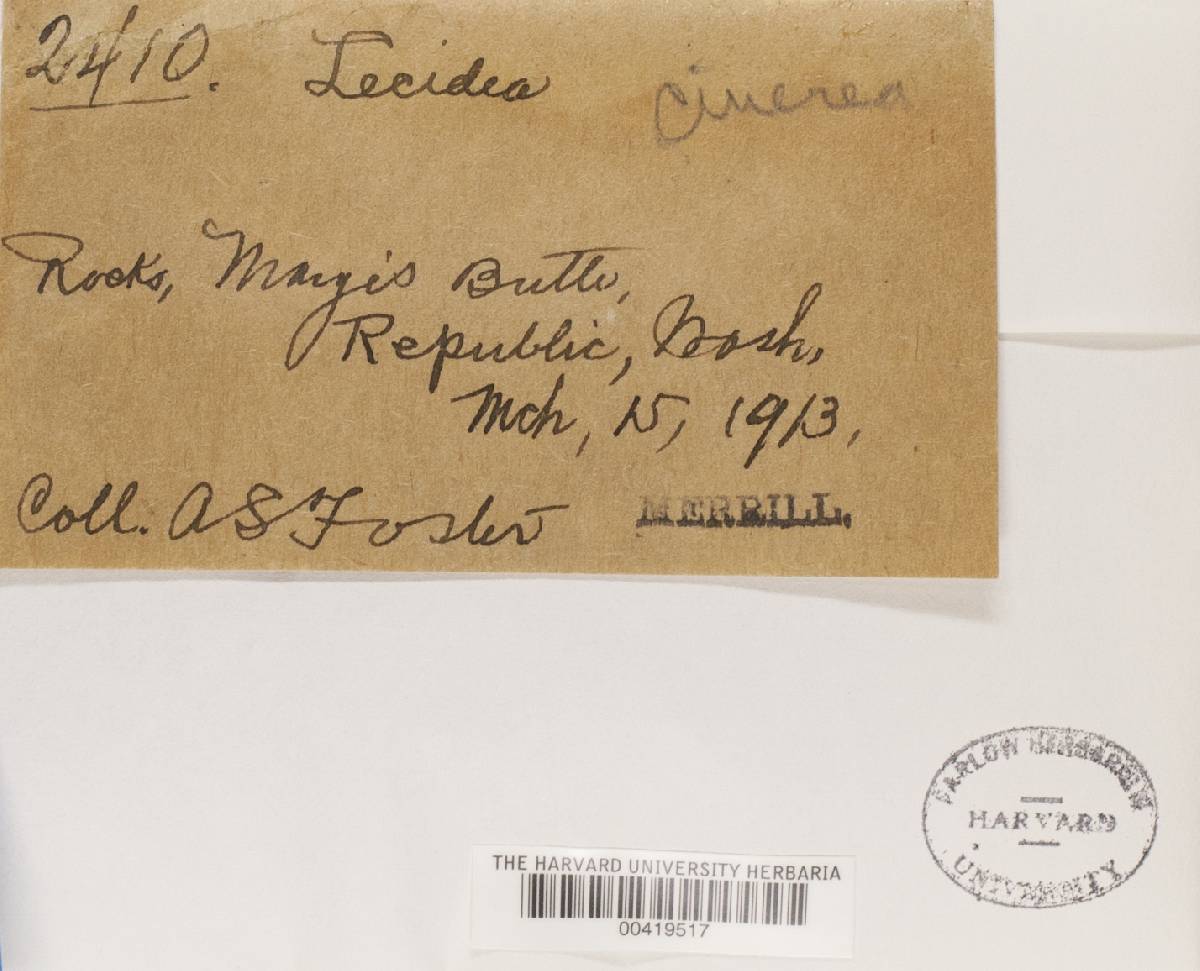 2410. Lecidea cinerea
Rocks, Margis Butte,
Republic, Wash,
Mch, 15, 1913,
Coll. A S Foster MERRILL.
FARLOW HERBARIUM
HARVARD
UNIVERSITY
THE HARVARD UNIVERSITY HERBARIA
00419517